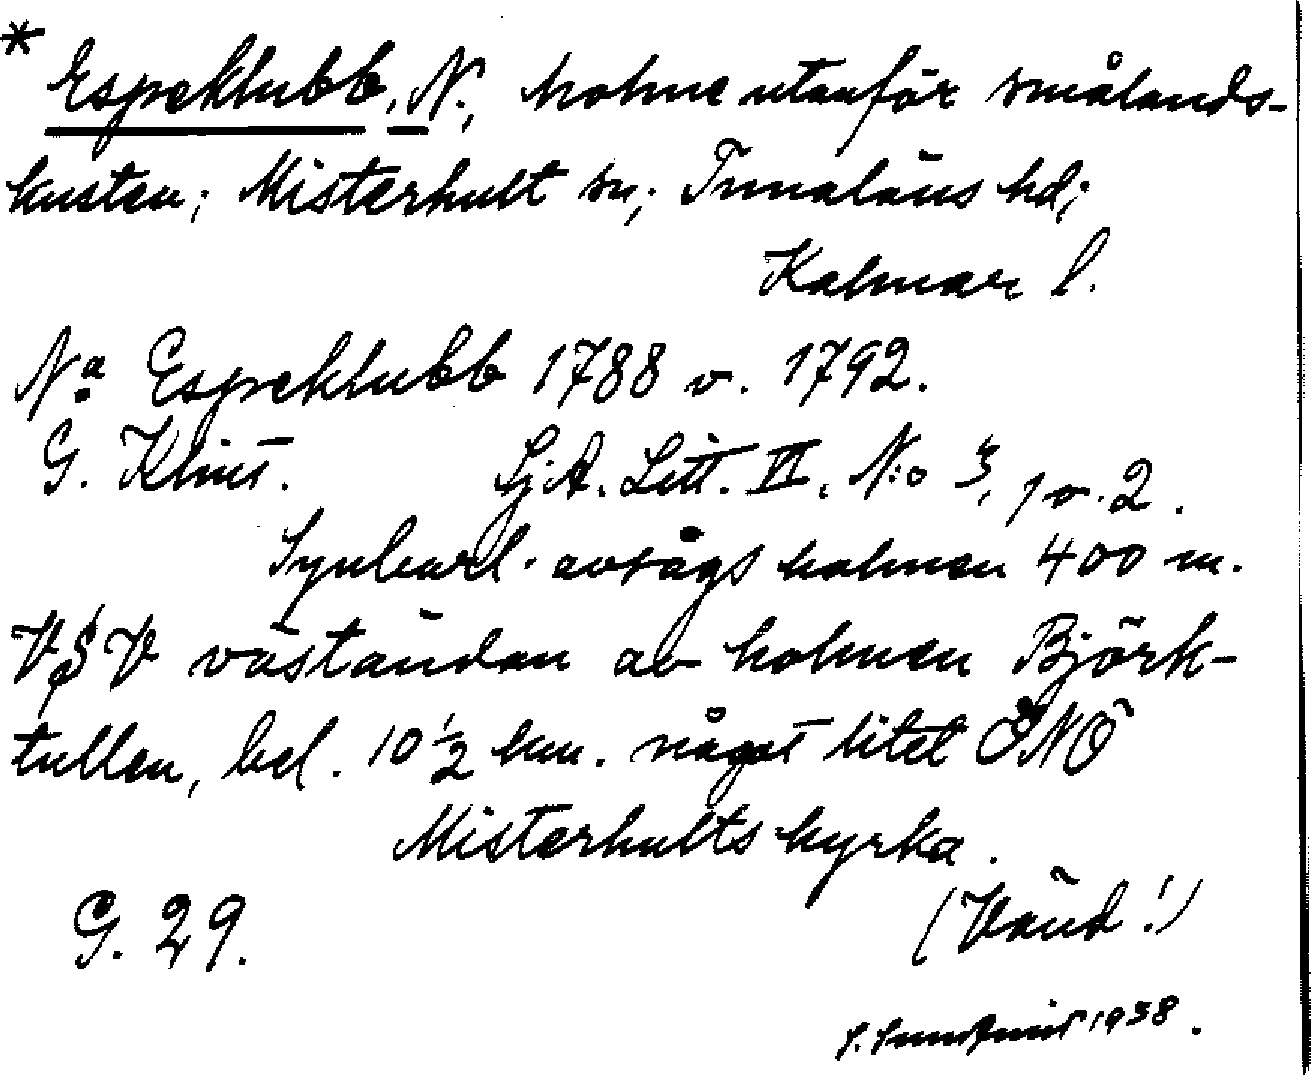 * Espeklubb, N., holme utanför smålands-
kusten; Misterhult sn; Tunaläns hd;
Kalmar l.
Na Espeklubb 1788 o. 1792.
G. Klint. Sj.A. Litt. VI. N:o 3, 1 o. 2.
avsågs holmen 400 m.
VSV väständan av holmen Björk-
tullen, bel. 10 1/2 km. något litet ÖNÖ
Misterhults kyrka.
G. 29. (Vänd!)
1938.